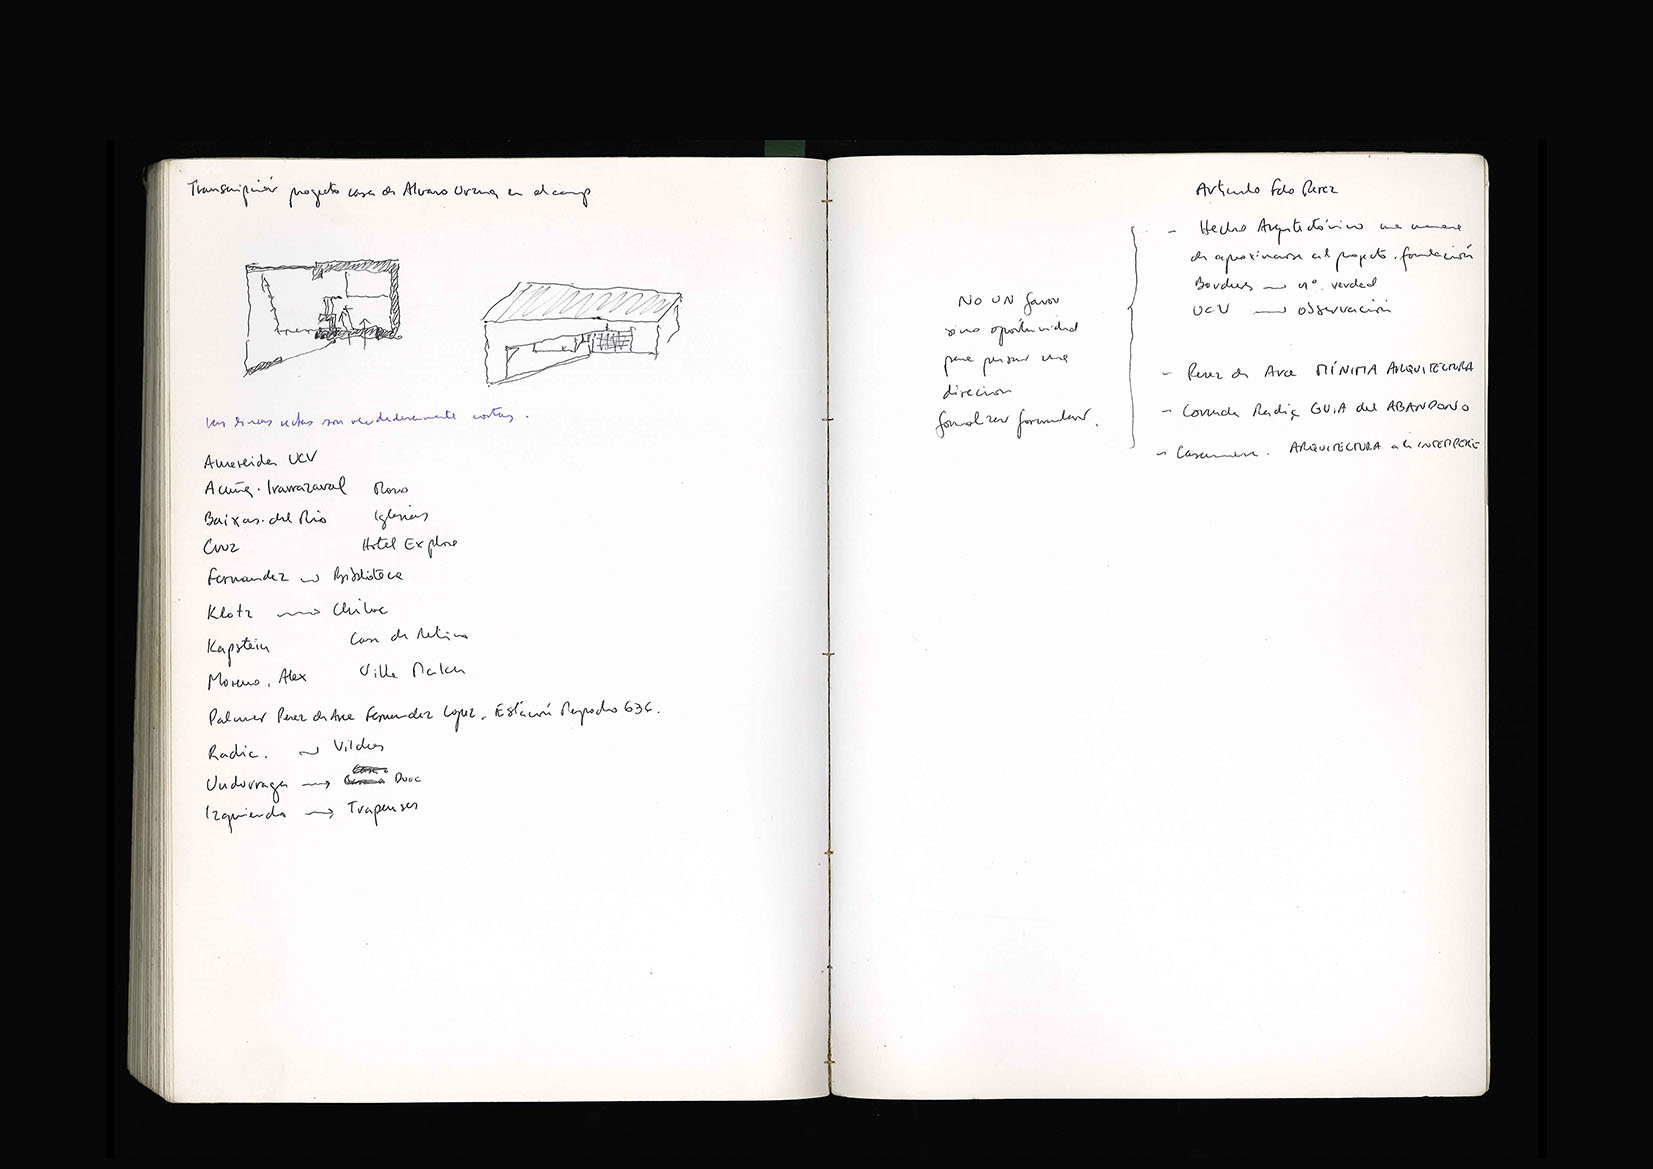 Transcripción proyecto casa de Alvaro Urzua en el camp
las lineas rectas son verdaderamente cortas.
Amereida UCV
Acuña. Irarrazaval
Baixas. del Rio Iglesias
Cruz Hotel Explora
Fernandez Biblioteca
Klotz Chiloe
Kapstein Casa de Retiro
Moreno, Alex
Palmer Perez de Arce Fernandez Lopez. Estación Mapocho 636.
Radic. Vilches
Undurraga → Duoc
Izquierdo → Trapenses
No UN favor
sino oportunidad
para pensar una
direccion
formalizar formular.
Articulo Fdo Perez
- Hecho Arquitectónico una manera
de aproximarse al proyecto. fundación
Borchers → nº. verdad
UCV → observación
- Perez de Arce MÍNIMA ARQUITECTURA
- Correa Radic GUIA del ABANDONO
- ARQUITECTURA a la INTEMPERIE